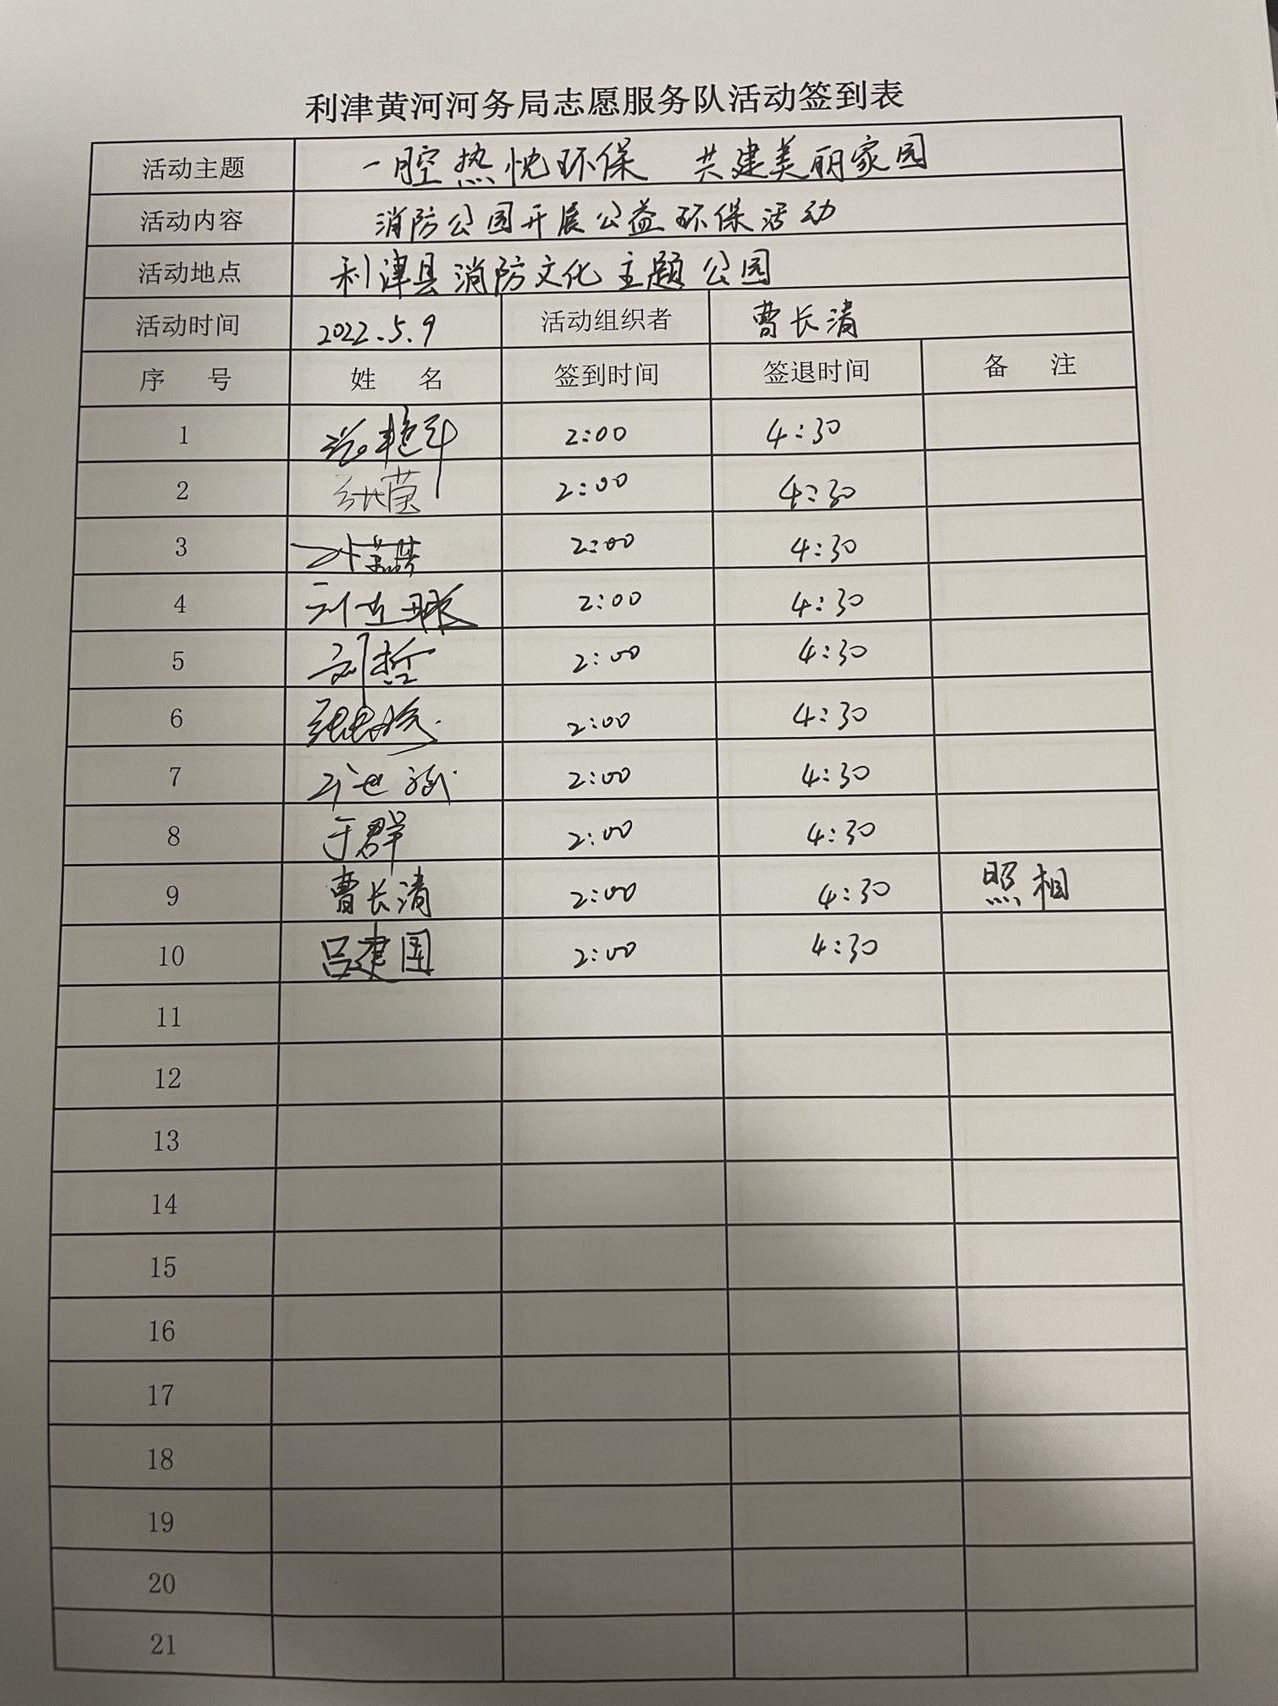 利津黄河河务局志愿服务队活动签到表
活动主题 一腔热忱环保 共建美丽家园
活动内容 消防公园开展公益环保活动
活动地点 利津县消防文化主题公园
活动时间 2022.5.9 活动组织者 曹长清
序 号 姓 名 签到时间 签退时间 备 注
1 2:00 4:30
2 张莹 2:00 4:30
3 2:00 4:30
4 2:00 4:30
5 刘哲 2:00 4:30
6 2:00 4:30
7 2:00 4:30
8 于群 2:00 4:30
9 曹长清 2:00 4:30 照相
10 吕建国 2:00 4:30
11
12
13
14
15
16
17
18
19
20
21